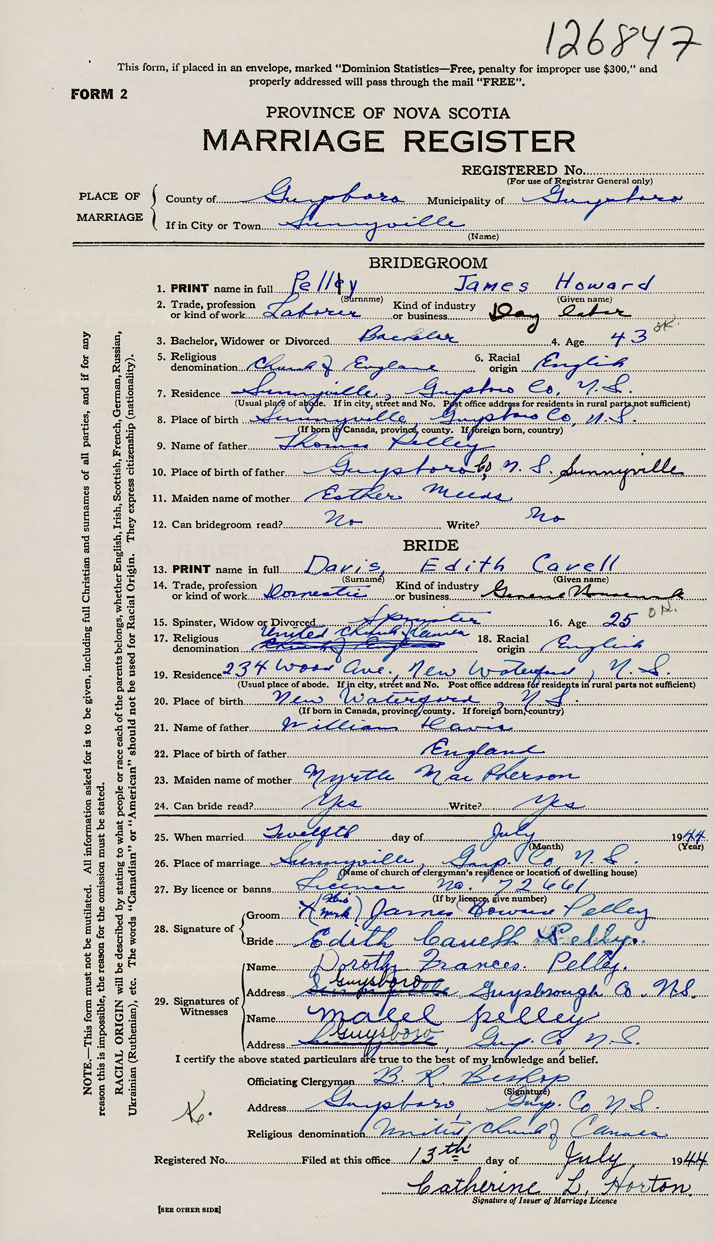 126847
This form, if placed in an envelope, marked "Dominion Statistics—Free, penalty for improper use $300," and
properly addressed will pass through the mail "FREE".
FORM 2
PROVINCE OF NOVA SCOTIA
MARRIAGE REGISTER
REGISTERED No.
(For use of Registrar General only)
PLACE OF MARRIAGE
County of Guysboro Municipality of Guysboro
If in City or Town Sunnyville
(Name)
BRIDEGROOM
1. PRINT name in full Pelley James Howard
(Surname) (Given name)
2. Trade, profession or kind of work Laborer Kind of industry or business Day labor
3. Bachelor, Widower or Divorced Bachelor 4. Age 43 ok.
5. Religious denomination Church of England 6. Racial origin English
7. Residence Sunnyville, Guysboro Co, N.S.
(Usual place of abode. If in city, street and No. Post office address for residents in rural parts not sufficient)
8. Place of birth Sunnyville, Guysboro Co, N.S.
(If born in Canada, province, county. If foreign born, country)
9. Name of father Thomas Pelley
10. Place of birth of father Guysboro Co, N.S. Sunnyville
11. Maiden name of mother Esther Meeds
12. Can bridegroom read? No Write? No
BRIDE
13. PRINT name in full Davis, Edith Cavell
(Surname) (Given name)
14. Trade, profession or kind of work Domestic Kind of industry or business General Housework
15. Spinster, Widow or Divorced Spinster 16. Age 25 OK.
17. Religious denomination United Church Canada Church of England 18. Racial origin English
19. Residence 234 Wood Ave., New Waterford, N.S.
(Usual place of abode. If in city, street and No. Post office address for residents in rural parts not sufficient)
20. Place of birth New Waterford, N.S.
(If born in Canada, province, county. If foreign born, country)
21. Name of father William Davis
22. Place of birth of father England
23. Maiden name of mother Myrtle MacPherson
24. Can bride read? Yes Write? Yes
25. When married Twelfth day of July 1944
(Month) (Year)
26. Place of marriage Sunnyville, Guys. Co, N.S.
(Name of church or clergyman's residence or location of dwelling house)
27. By licence or banns Licence No. 72661
(If by licence, give number)
28. Signature of
Groom X (his mark) James Howard Pelley
Bride Edith Cavell Pelley.
29. Signatures of Witnesses
Name Dorothy Frances. Pelley.
Address Guysboro Guysbrough Co. N.S.
Name Mabel Pelley
Address Guysboro Guy. Co, N.S.
I certify the above stated particulars are true to the best of my knowledge and belief.
Officiating Clergyman B. R. Bishop
(Signature)
Address Guysboro, Guys. Co N.S.
Religious denomination United Church of Canada
Registered No. Filed at this office 13th day of July, 1944
Catherine L. Horton
Signature of Issuer of Marriage Licence
[SEE OTHER SIDE]
NOTE.—This form must not be mutilated. All information asked for is to be given, including full Christian and surnames of all parties, and if for any
reason this is impossible, the reason for the omission must be stated.
RACIAL ORIGIN will be described by stating to what people or race each of the parents belongs, whether English, Irish, Scottish, French, German, Russian,
Ukrainian (Ruthenian), etc. The words "Canadian" or "American" should not be used for Racial Origin. They express citizenship (nationality).